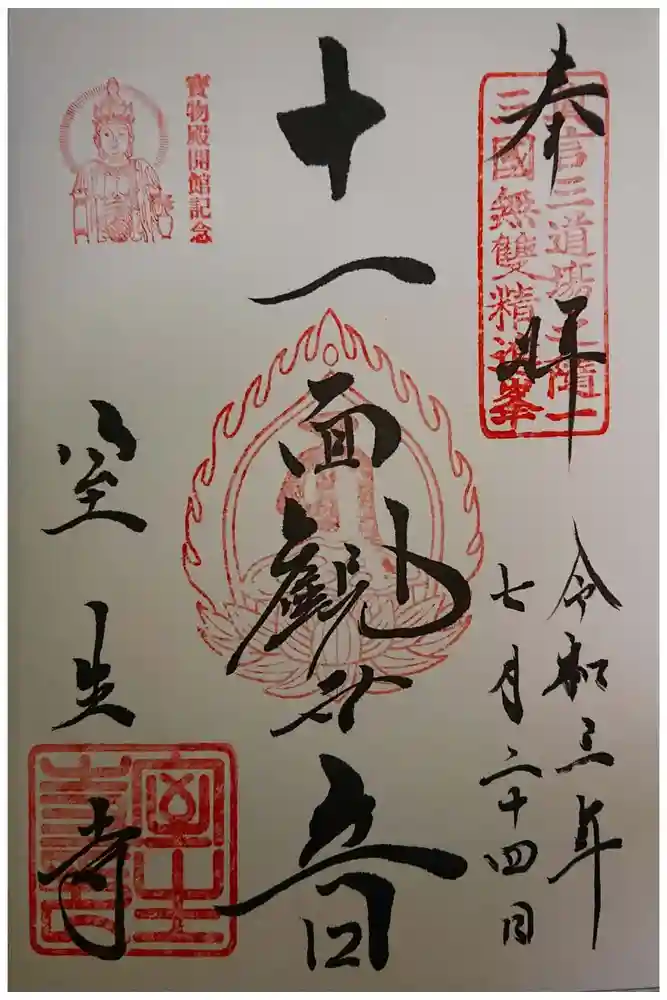 奉拝
三道場之隨一
三國無雙精進峯
令和三年
七月二十四日
十一面觀世音
寶物殿開館記念
室生寺